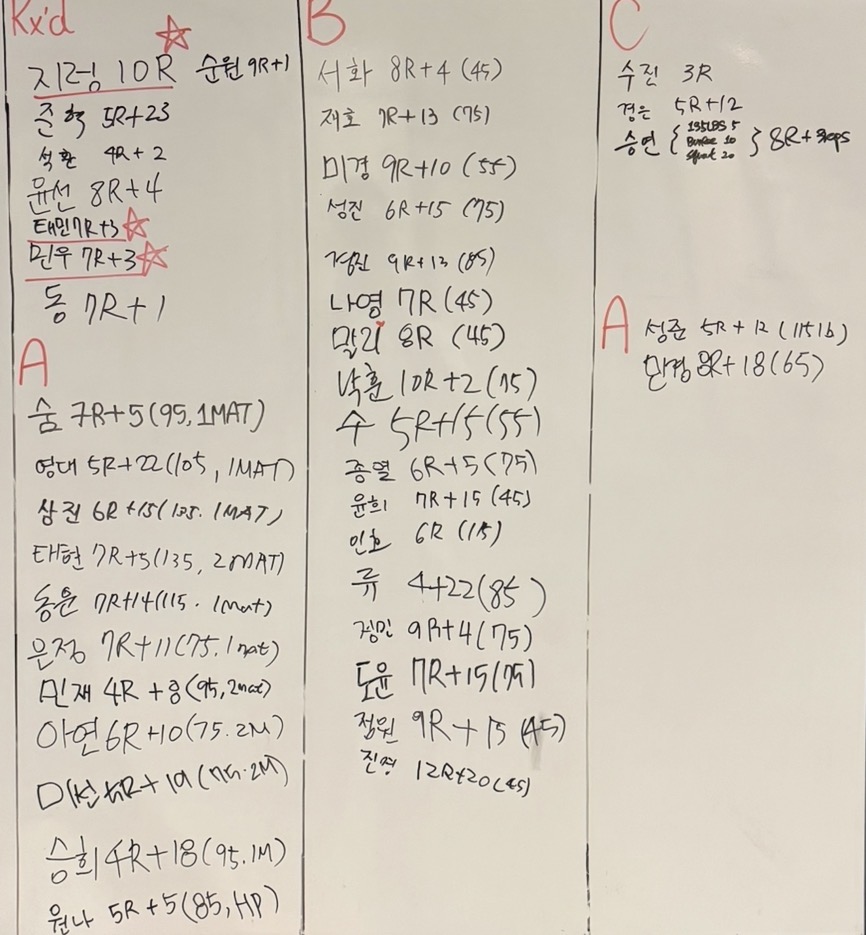 Rx'd
지령 10R 순원 9R+1
준혁 5R+23
석환 4R+2
윤선 8R+4
태민 7R+3
민우 7R+3
동 7R+1
A
숨 7R+5(95, 1MAT)
영대 5R+22(105, 1MAT)
삼진 6R+15(135. 1MAT)
태현 7R+5(135, 2MAT)
동윤 7R+14(115. 1mat)
은정 7R+11(75. 1mat)
민재 4R+8(95, 2mat)
아연 6R+10(75. 2M)
미선 R+19(75. 2M)
승희 4R+18(95. 1M)
원나 5R+5(85, HP)
B
서화 8R+4 (45)
재호 7R+13 (75)
미경 9R+10 (55)
성진 6R+15 (75)
경민 9R+13 (85)
나영 7R (45)
말리 8R (45)
박훈 10R+2(75)
수 5R+15(55)
종열 6R+5(75)
윤희 7R+15(45)
인호 6R (115)
류 4+22(85)
정민 9R+4(75)
도윤 7R+15(75)
정원 9R+15 (45)
진영 12R+20(45)
C
수진 3R
경은 5R+12
승연 { 135LBS 5
Burpee 10
Squat 20 } 8R+3reps
A
성준 5R+12 (115lb)
민경 8R+18(65)